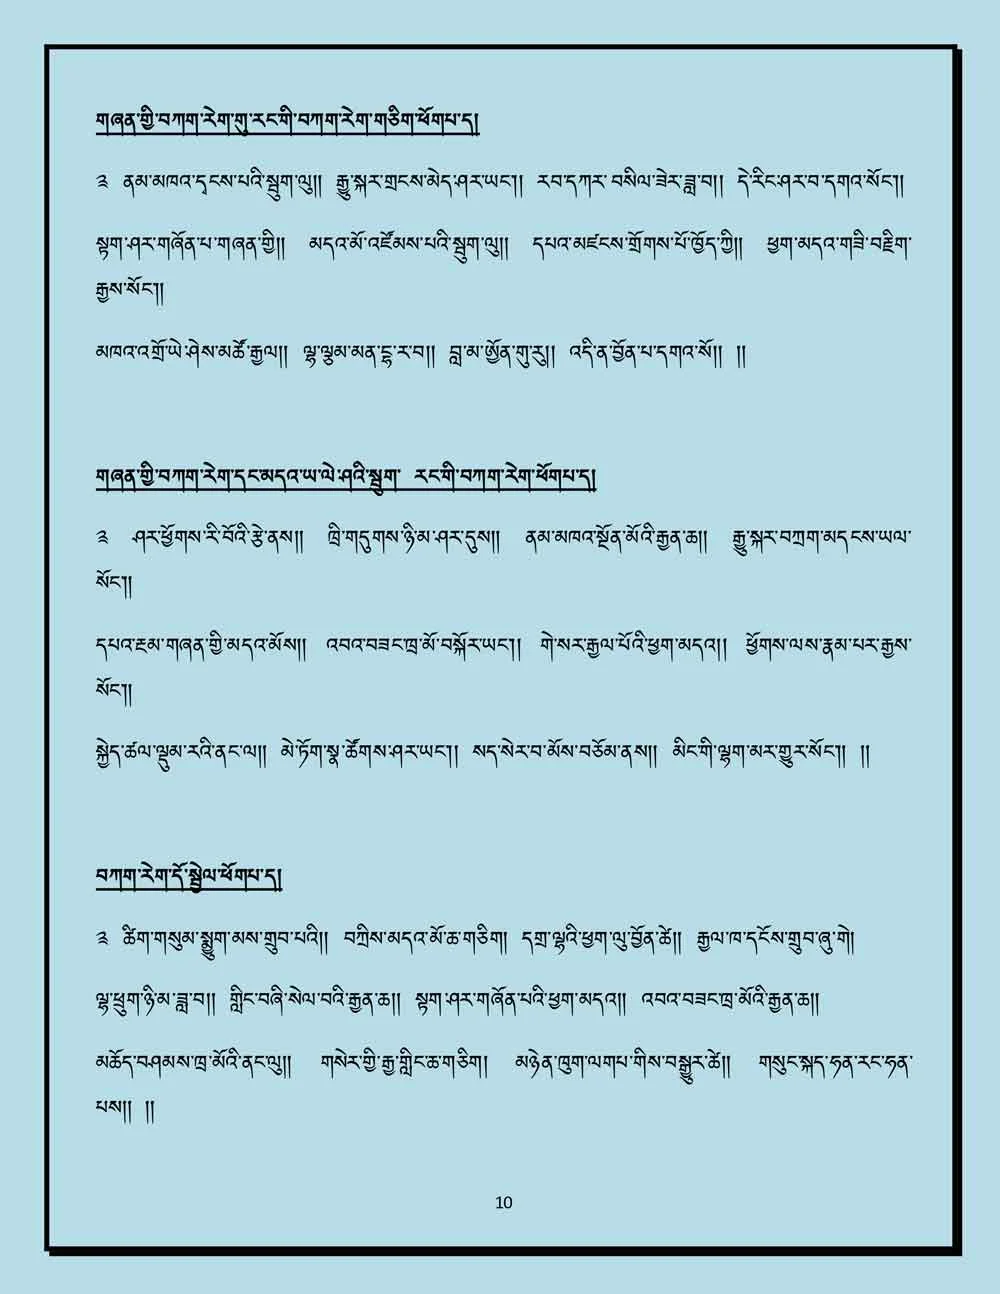 གཞན་གྱི་བཀག་རེག་གུ་རང་གི་བཀག་རེག་གཅིག་ཕོགཔ་ད།
༣ ནམ་མཁའ་དྭངས་པའི་སྦུག་ལུ།། རྒྱུ་སྐར་གྲངས་མེད་ཤར་ཡང་།། རབ་དཀར་བསིལ་ཟེར་ཟླ་བ།། དེ་རིང་ཤར་བ་དགའ་སོང་།།
སྟག་ཤར་གཞོན་པ་གཞན་གྱི།། མདའ་མོ་འཛོམས་པའི་སྦུག་ལུ།། དཔའ་མཛངས་གྲོགས་པོ་ཁྱོད་ཀྱི།། ཕྱག་མདའ་གཟི་བརྗིག་
རྒྱས་སོང་།།
མཁའ་འགྲོ་ཡེ་ཤེས་མཚོ་རྒྱལ།། ལྷ་ལྕམ་མན་དྷ་ར་བ།། བླ་མ་ཨྱོན་གུ་རུ།། འདི་ན་བྱོན་པ་དགའ་སོ།། །།
གཞན་གྱི་བཀག་རེག་དང་མདའ་ཡ་ལེ་ཤའི་སྦུག་ རང་གི་བཀག་རེག་ཕོགཔ་ད།
༣ ཤར་ཕྱོགས་རི་བོའི་རྩེ་ནས།། ཁྲི་གདུགས་ཉི་མ་ཤར་དུས།། ནམ་མཁའ་སྔོན་མོའི་རྒྱན་ཆ།། རྒྱུ་སྐར་བཀྲག་མདངས་ཡལ་
སོང་།།
དཔའ་རྔམ་གཞན་གྱི་མདའ་མོས།། འབའ་བཟང་ཁྲ་མོ་བསྐོར་ཡང་།། གེ་སར་རྒྱལ་པོའི་ཕྱག་མདའ།། ཕྱོགས་ལས་རྣམ་པར་རྒྱས་
སོང་།།
སྐྱེད་ཚལ་ལྡུམ་རའི་ནང་ལ།། མེ་ཏོག་སྣ་ཚོགས་ཤར་ཡང་།། སད་སེར་བ་མོས་བཅོམ་ནས།། མིང་གི་ལྷག་མར་གྱུར་སོང་།། །།
བཀག་རེག་དོ་སྦྲེལ་ཕོགཔ་ད།
༣ ཚིག་གསུམ་སྨྱུག་མས་གྲུབ་པའི།། བཀྲིས་མདའ་མོ་ཆ་གཅིག།། དགྲ་ལྷའི་ཕྱག་ལུ་བྱོན་ཚེ།། རྒྱལ་ཁ་དངོས་གྲུབ་ཞུ་གེ།
ལྷ་ཕྲུག་ཉི་མ་ཟླ་བ།། གླིང་བཞི་སེལ་བའི་རྒྱན་ཆ།། སྟག་ཤར་གཞོན་པའི་ཕྱག་མདའ།། འབའ་བཟང་ཁྲ་མོའི་རྒྱན་ཆ།།
མཆོད་བཤམས་ཁྲ་མོའི་ནང་ལུ།། གསེར་གྱི་རྒྱ་གླིང་ཆ་གཅིག། མཉེན་ཁུག་ལགཔ་གིས་བསྒྱུར་ཚེ།། གསུང་སྐད་ཧན་རང་ཧན་
པས།། །།
10